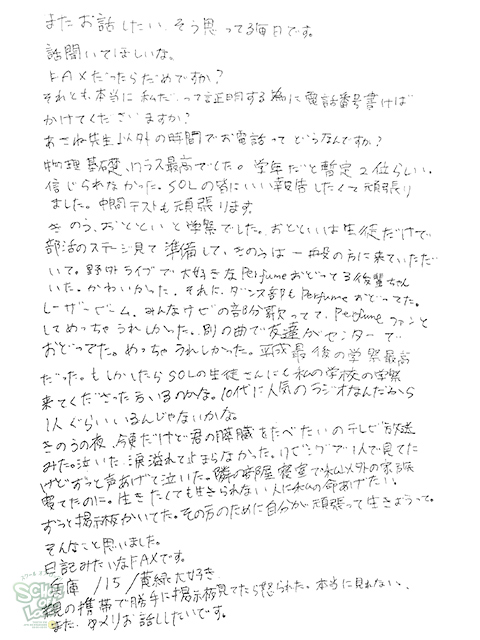 またお話したい、そう思ってる毎日です。
話聞いてほしいな。
FAXだったらだめですか?
それとも、本当に私だ、って証明する為に電話番号書けば
かけてくださいますか?
あさね先生以外の時間でお電話ってどうなんですか?
物理基礎、クラス最高でした。学年だと暫定2位らしい、
信じられなかった。SOLの皆にいい報告したくて頑張り
ました。中間テストも頑張ります。
きのう、おとといと学祭でした。おとといは生徒だけで
部活のステージ見て準備して、きのうは一般の方に来ていただ
いて。野外ライブで大好きなPerfumeおどってる後輩ちゃん
いた。かわいかった。それに、ダンス部もPerfumeおどってた。
レーザービーム、みんなサビの部分歌ってて、Perfumeファンと
してめっちゃうれしかった。別の曲で友達がセンターで
おどってた。めっちゃうれしかった。平成最後の学祭最高
だった。もしかしたらSOLの生徒さんにも私の学校の学祭
来てくださった方いるのかな。10代に人気のラジオなんだから
1人ぐらいいるんじゃないかな。
きのうの夜、だけど君の膵臓をたべたいのテレビ放送
みた。泣いた。涙溢れて止まらなかった。リビングで1人で見てた
けどずっと声あげて泣いた。隣の部屋寝室で私以外の家族
寝てたのに。生きたくても生きられない人に私の命あげたい。
ずっと掲示板かいてた。その方のために自分が頑張って生きようって。
そんなこと思いました。
日記みたいなFAXです。
兵庫 /15/黄緑大好き
親の携帯で勝手に掲示板見てたら怒られた。本当に見れない、
また、お話ししたいです。
SCHOOL OF LOCK!